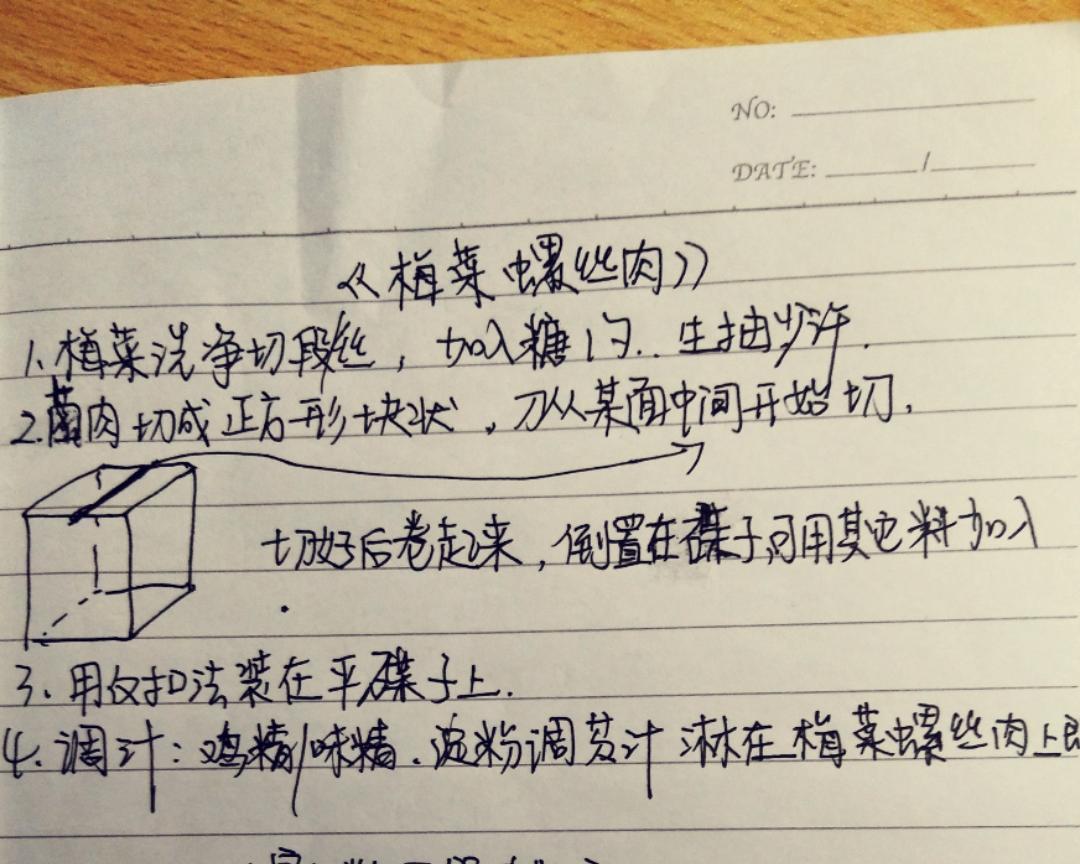 NO:
DATE: /
《梅菜螺丝肉》
1、梅菜洗净切段丝，加入糖1勺..生抽少许.
2.肉切成正方形块状，刀从某面中间开始切.
切好后卷起来，倒置在碟子,可用其它料加入
3、用反扣法装在平碟子上.
4.调汁：鸡精/味精.淀粉调芡汁 淋在梅菜螺丝肉上即